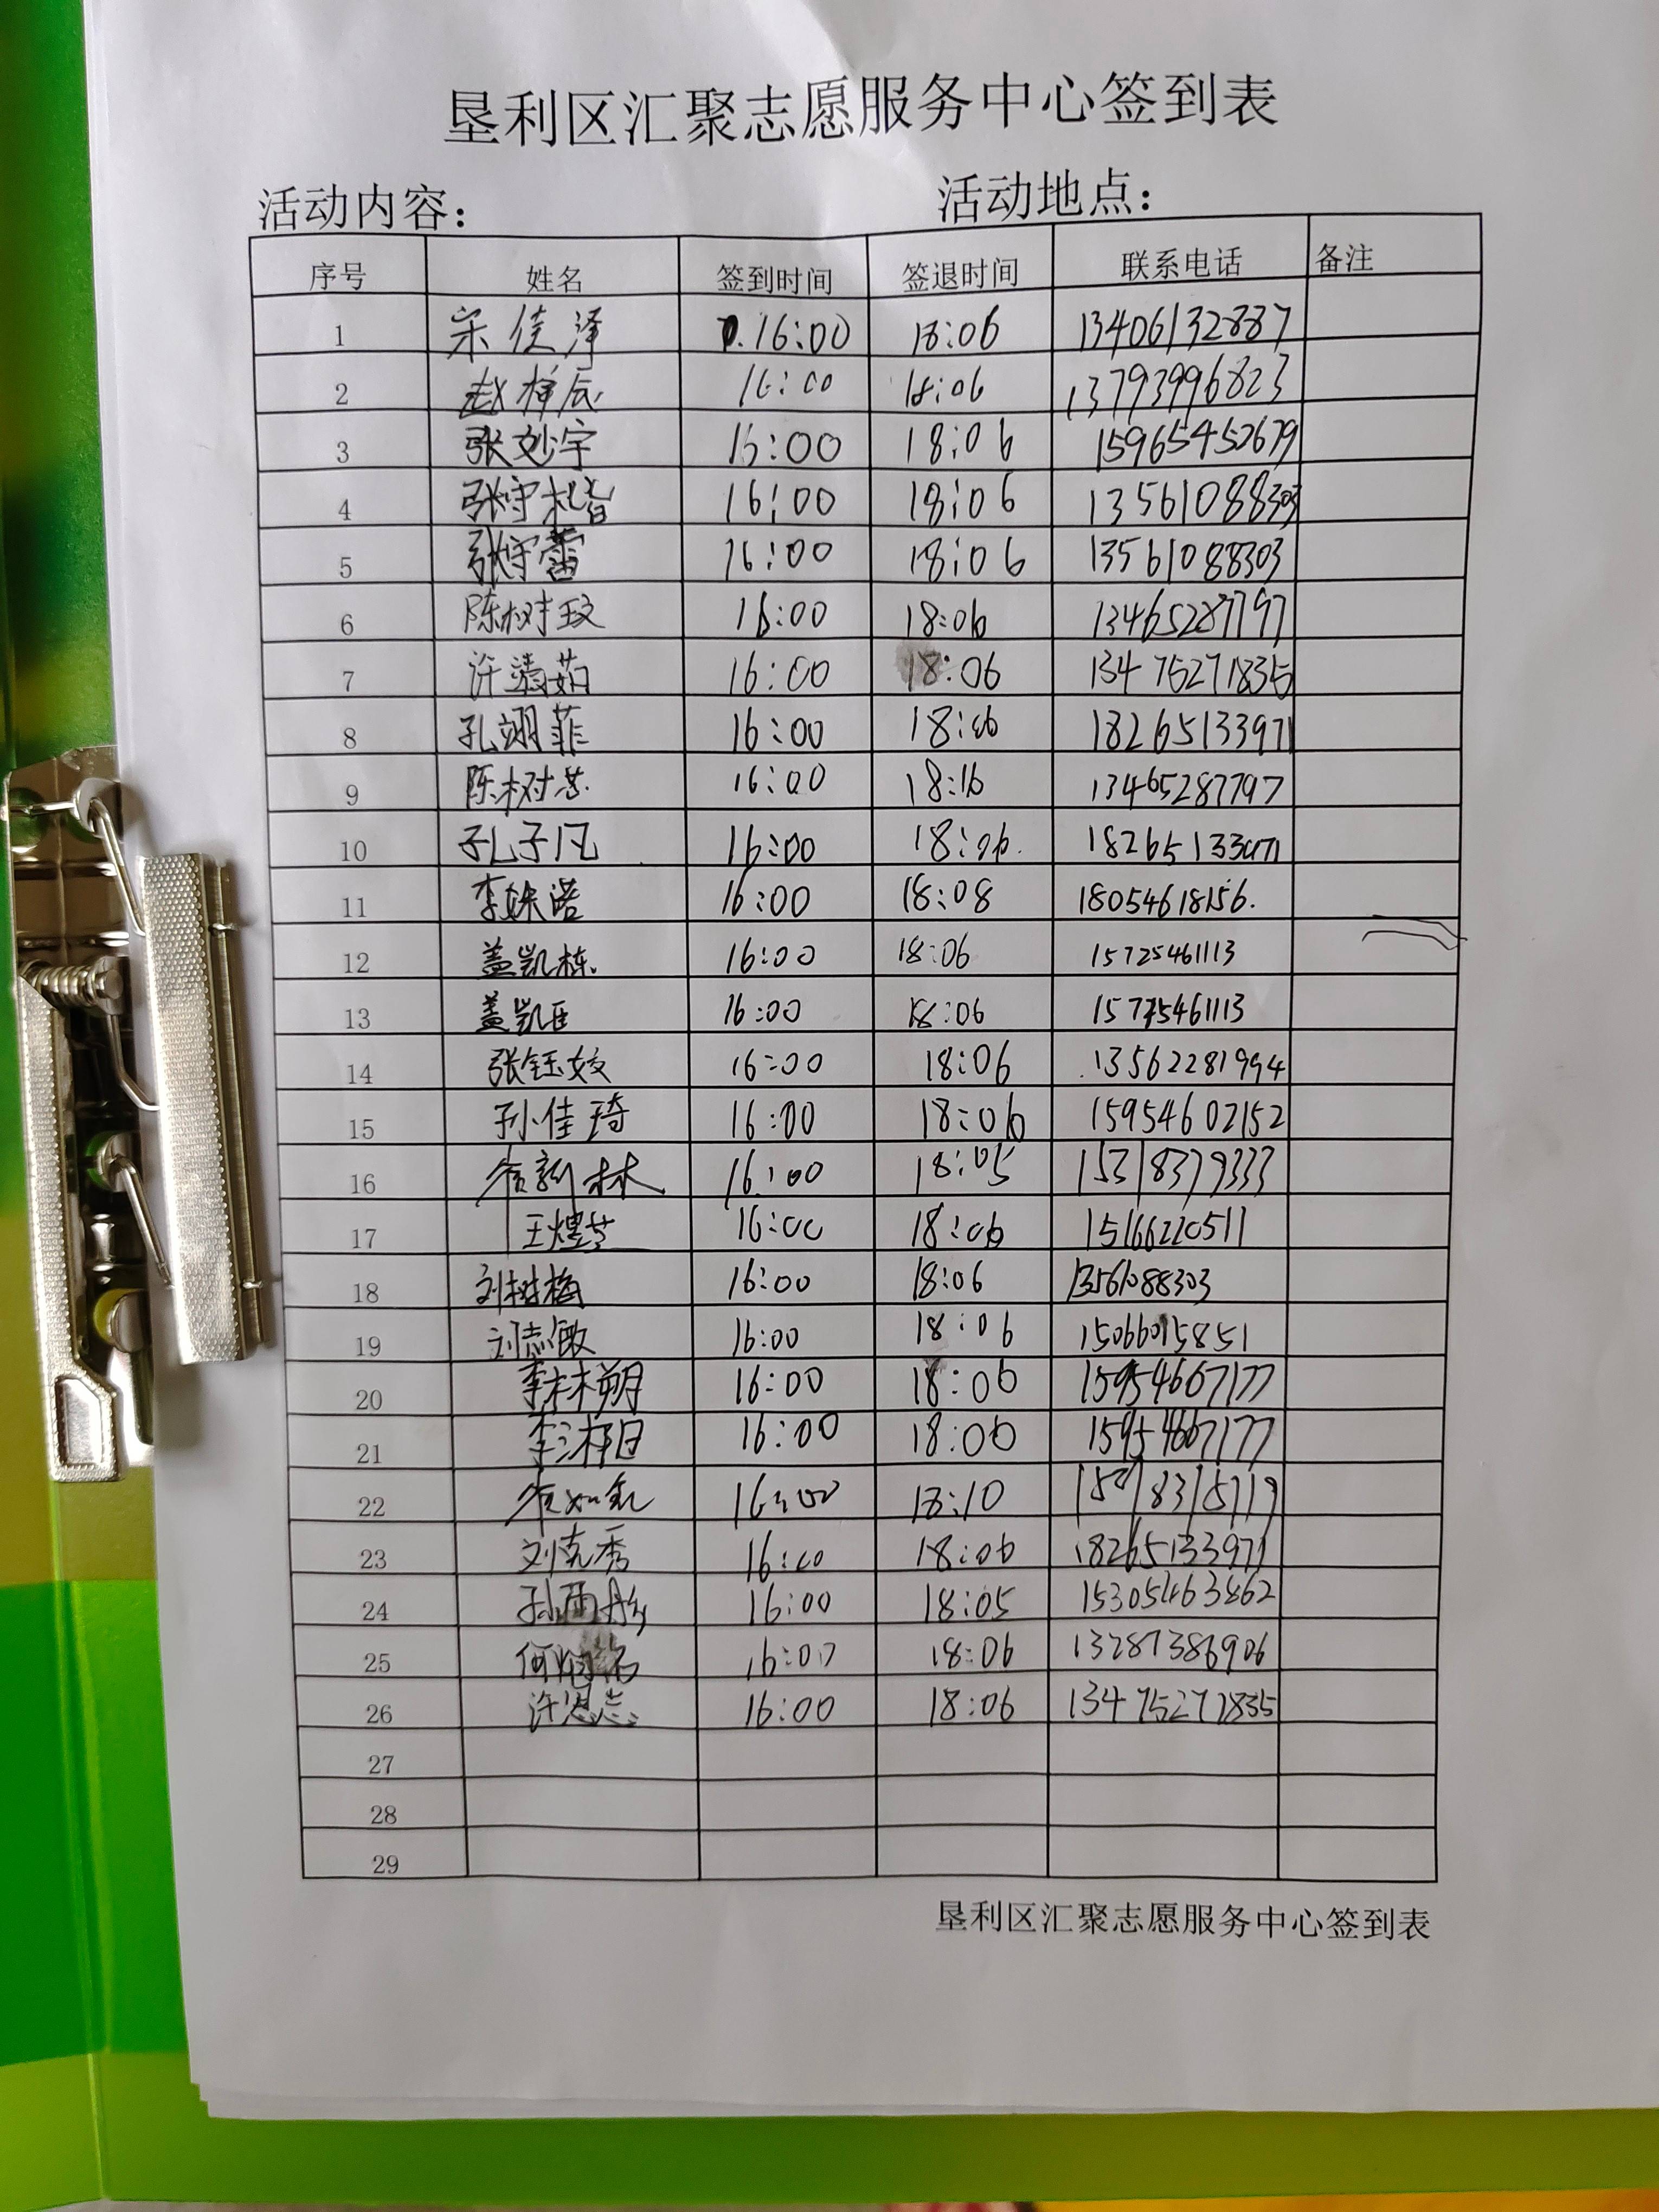 垦利区汇聚志愿服务中心签到表
活动内容： 活动地点：
序号 姓名 签到时间 签退时间 联系电话 备注
1 宋佳泽 16:00 18:06 13406132887
2 赵梓辰 16:00 18:06 13793996823
3 张妙宇 16:00 18:06 15965452679
4 张宇楷 16:00 18:06 13561088303
5 张宇蕾 16:00 18:06 13561088303
6 陈树玟 16:00 18:06 13465287797
7 许清茹 16:00 18:06 13475271835
8 孔翊菲 16:00 18:06 18265133971
9 陈树 16:00 18:16 13465287797
10 孔子凡 16:00 18:06 18265133971
11 李姝诺 16:00 18:08 18054618156.
12 盖凯栋 16:00 18:06 15725461113
13 盖凯 16:00 18:06 15725461113
14 张钰姣 16:00 18:06 13562281994
15 孙佳琦 16:00 18:06 15954602152
16 新林 16:00 18:05 15318379333
17 王煜 16:00 18:06 15166220511
18 刘树梅 16:00 18:06 13561088303
19 刘志敏 16:00 18:06 15066015851
20 李林朔 16:00 18:06 15954667177
21 李 16:00 18:06 15954667177
22 16:00 18:10
23 刘克秀 16:00 18:06 18265133971
24 孙雨彤 16:00 18:05 15305463862
25 何 16:00 18:06 13287386906
26 许 16:00 18:06 13475271835
27
28
29
垦利区汇聚志愿服务中心签到表